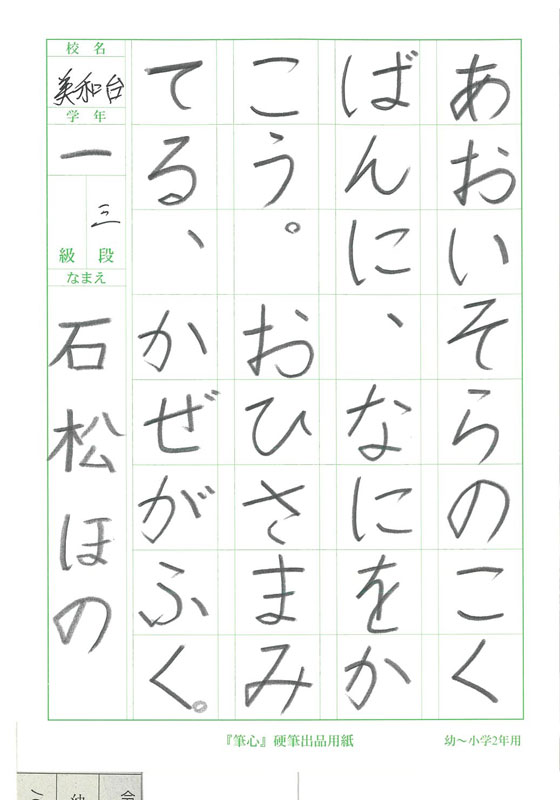 あおいそらのこく
ばんに、なにをか
こう。おひさまみ
てる、かぜがふく。
校名
美和台
学年
一
三
段
級
なまえ
石松ほの
『筆心』硬筆出品用紙
幼～小学2年用